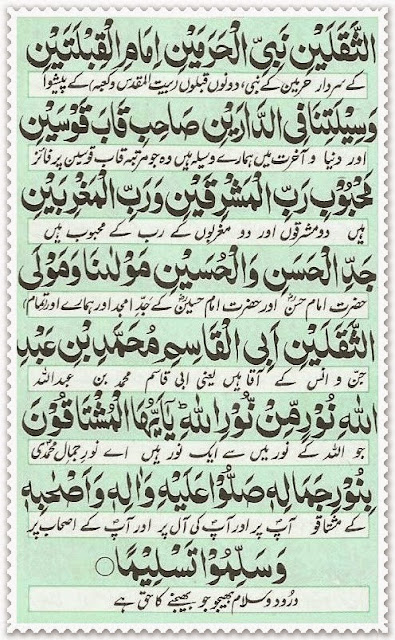 الثَّقَلَيْنِ نَبِيِّ الْحَرَمَيْنِ اِمَامِ الْقِبْلَتَيْنِ
کے سردار حرمین کے نبی، دونوں قبلوں (بیت المقدس و کعبہ) کے پیشوا
وَسِيْلَتِنَا فِي الدَّارَيْنِ صَاحِبِ قَابَ قَوْسَيْنِ
اور دنیا و آخرت میں ہمارے وسیلہ ہیں وہ جو مرتبہ قاب قوسین پر فائز
مَحْبُوْبِ رَبِّ الْمَشْرِقَيْنِ وَرَبِّ الْمَغْرِبَيْنِ
ہیں دو مشرقوں اور دو مغربوں کے رب کے محبوب ہیں
جَدِّ الْحَسَنِ وَالْحُسَيْنِ مَوْلٰىنَا وَمَوْلَى
حضرت امام حسنؓ اور حضرت امام حسینؓ کے جدِّ امجد اور ہمارے اور (تمام)
الثَّقَلَيْنِ اَبِي الْقَاسِمِ مُحَمَّدِ بْنِ عَبْدِ
جن و انس کے آقا ہیں یعنی ابی قاسم محمد بن عبداللہ
اللّٰهِ نُوْرٍ مِّنْ نُّوْرِ اللّٰهِ ؕ يٰٓاَيُّهَا الْمُشْتَاقُوْنَ
جو اللہ کے نور میں سے ایک نور ہیں اے نورِ جمالِ محمدی
بِنُوْرِ جَمَالِهٖ صَلُّوْا عَلَيْهِ وَاٰلِهٖ وَاَصْحَابِهٖ
کے مشتاقو آپؐ پر اور آپؐ کی آل پر اور آپؐ کے اصحاب پر
وَسَلِّمُوْا تَسْلِيْمًا ○
درُود و سلام بھیجو جو بھیجنے کا حق ہے